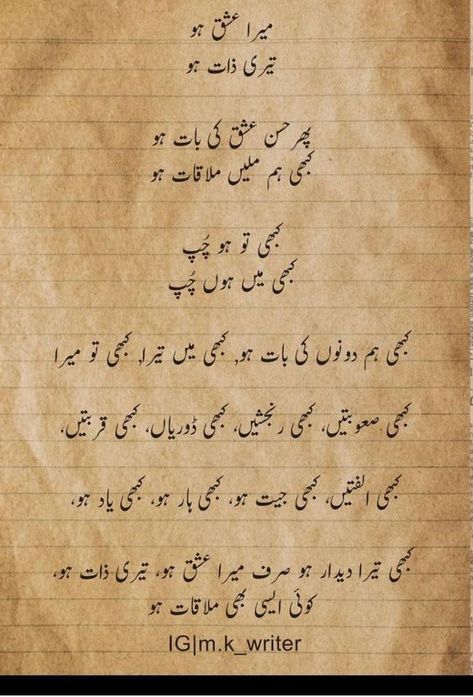 میرا عشق ہو
تیری ذات ہو
پھر حسن عشق کی بات ہو
کبھی ہم ملیں ملاقات ہو
کبھی تو ہو چُپ
کبھی میں ہوں چُپ
کبھی ہم دونوں کی بات ہو, کبھی میں تیرا, کبھی تو میرا
کبھی صعوبتیں، کبھی رنجشیں، کبھی ڈوریاں، کبھی قربتیں،
کبھی الفتیں، کبھی جیت ہو، کبھی ہار ہو، کبھی یاد ہو،
کبھی تیرا دیدار ہو صرف میرا عشق ہو، تیری ذات ہو،
کوئی ایسی بھی ملاقات ہو
IG|m.k_writer